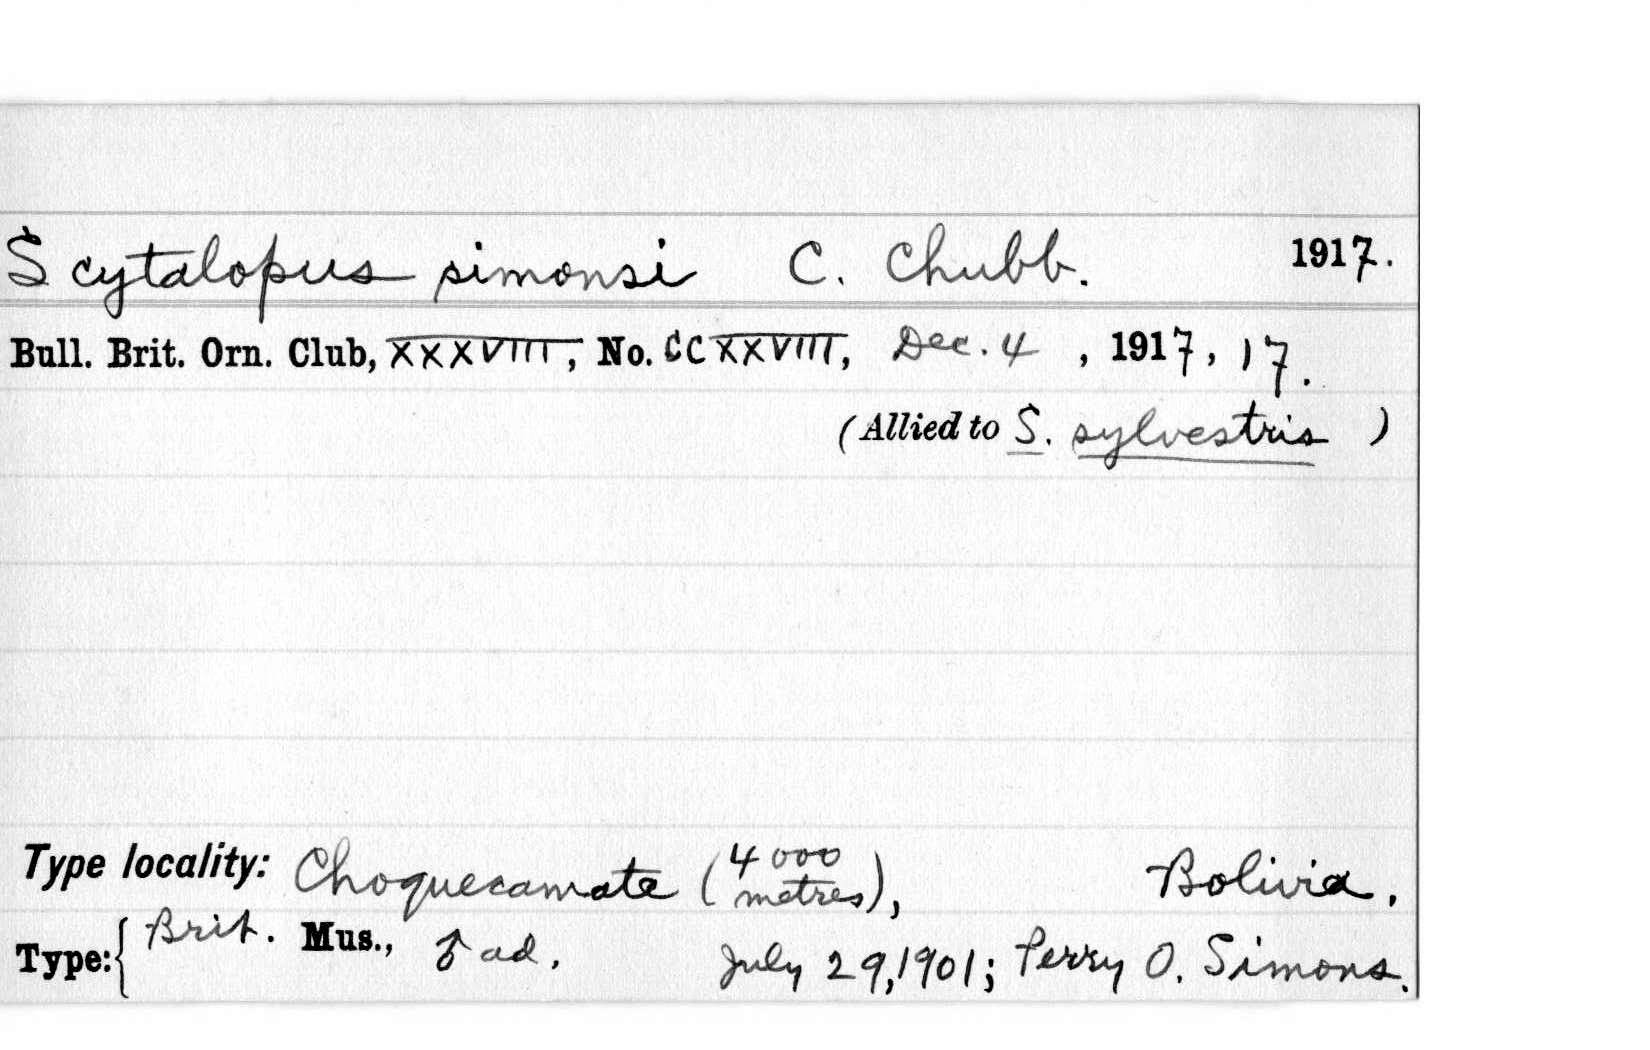 Scytalopus simonsi C. Chubb. 1917.
Bull. Brit. Orn. Club, XXXVIII, No. CCXXVIII, Dec. 4 , 1917, 17.
(Allied to S. sylvestris )
Type locality: Choquecamate (4000 metres), Bolivia.
Type: { Brit. Mus., ♂ ad. July 29, 1901; Perry O. Simons.